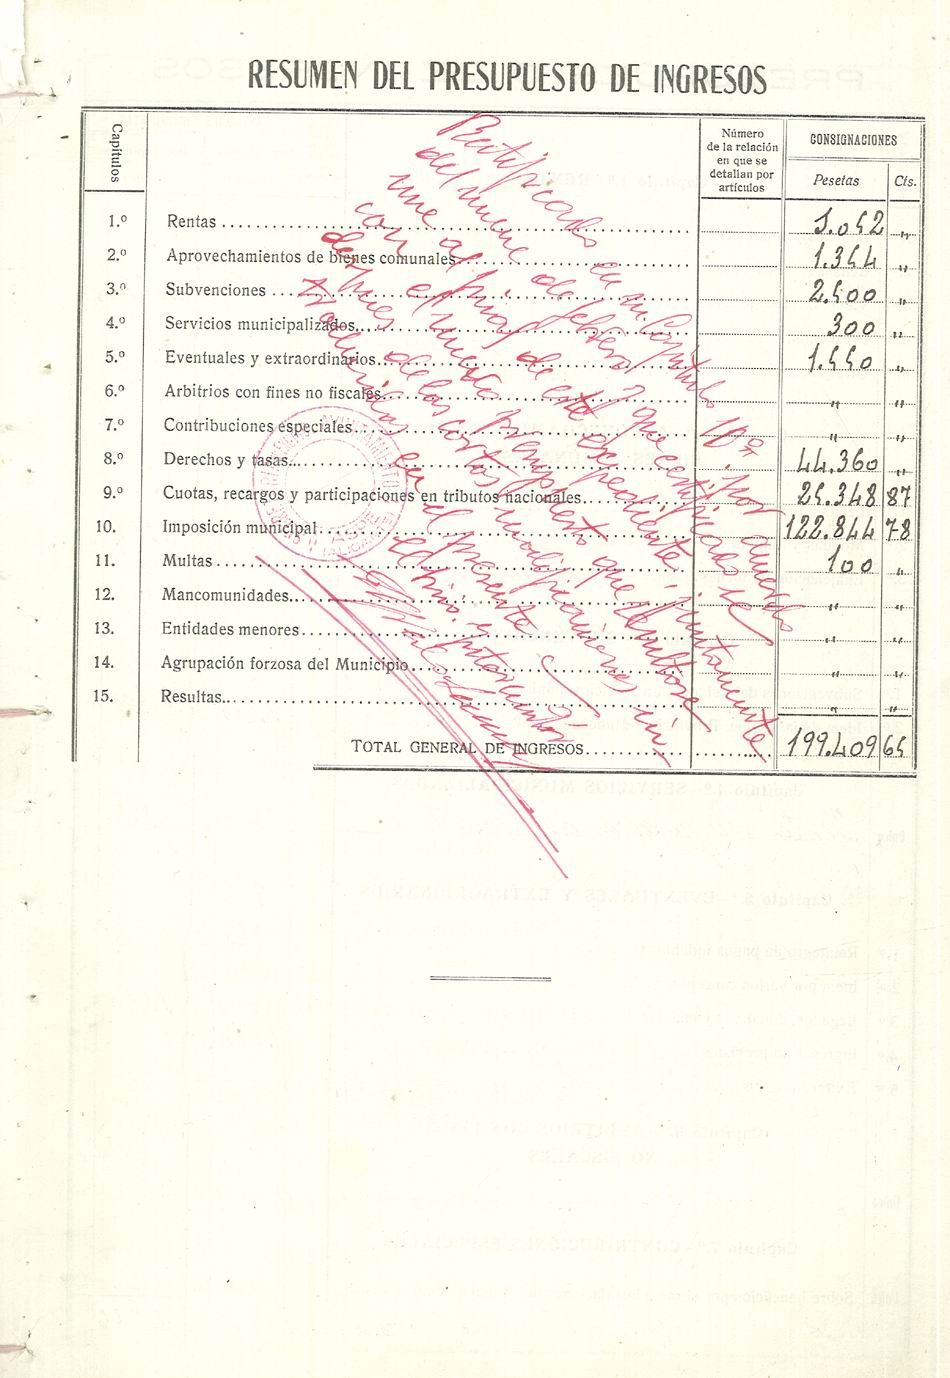 RESUMEN DEL PRESUPUESTO DE INGRESOS
Capítulos
Número de la relación en que se detallan por artículos
CONSIGNACIONES
Pesetas Cts.
1.º Rentas 1.052 „
2.º Aprovechamientos de bienes comunales 1.354 „
3.º Subvenciones 2.500 „
4.º Servicios municipalizados 300 „
5.º Eventuales y extraordinarios 1.550 „
6.º Arbitrios con fines no fiscales „ „
7.º Contribuciones especiales „ „
8.º Derechos y tasas 44.360 „
9.º Cuotas, recargos y participaciones en tributos nacionales 25.348 87
10. Imposición municipal 122.844 78
11. Multas 100 „
12. Mancomunidades „ „
13. Entidades menores „ „
14. Agrupación forzosa del Municipio „ „
15. Resultas „ „
TOTAL GENERAL DE INGRESOS 199.409 65
Rectificado en su Capítulo 10º, por acuerdo
del nueve de febrero y que certificado se
une al final de este expediente, juntamente
con el nuevo presupuesto que resultase
después de las cortas modificaciones in-
troducidas en el presente
AYUNTAMIENTO